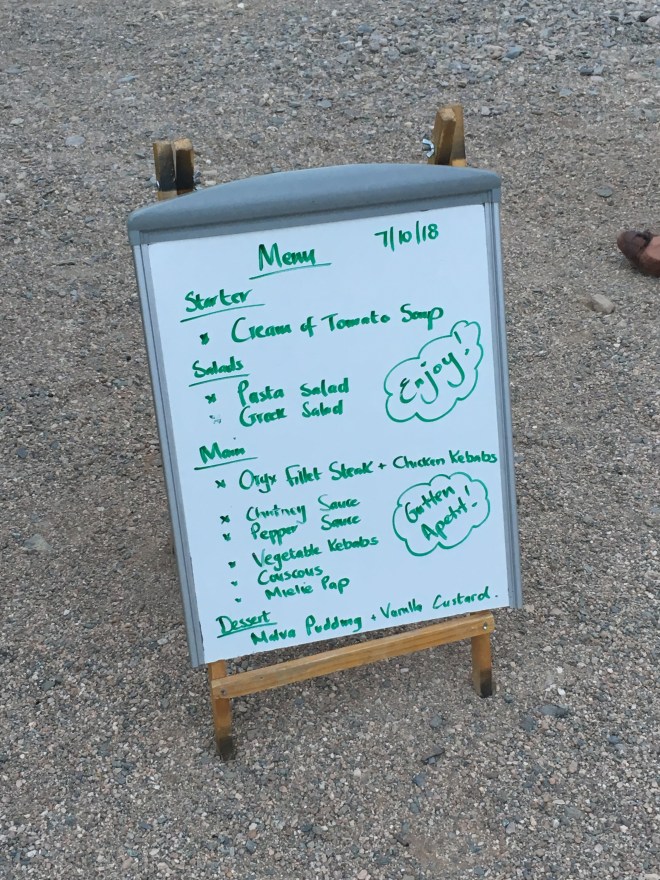 Menu 7/10/18
Starter
* Cream of Tomato Soup
Salads
* Pasta Salad
* Greek Salad
Enjoy!
Main
* Oryx Fillet Steak + Chicken Kebabs
* Chutney Sauce
* Pepper Sauce
* Vegetable Kebabs
* Couscous
* Mielie Pap
Gutten
Apetit!
Dessert
Malva Pudding + Vanilla Custard.